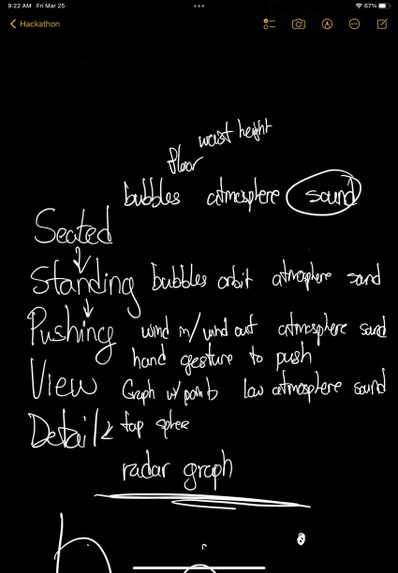 9:22 AM Fri Mar 25
67%
Hackathon
waist height
floor
bubbles atmosphere sound
Seated
Standing bubbles orbit atmosphere sound
Pushing wind in/wind out atmosphere sound
hand gesture to push
View Graph w/ points low atmosphere sound
Details tap sphere
radar graph